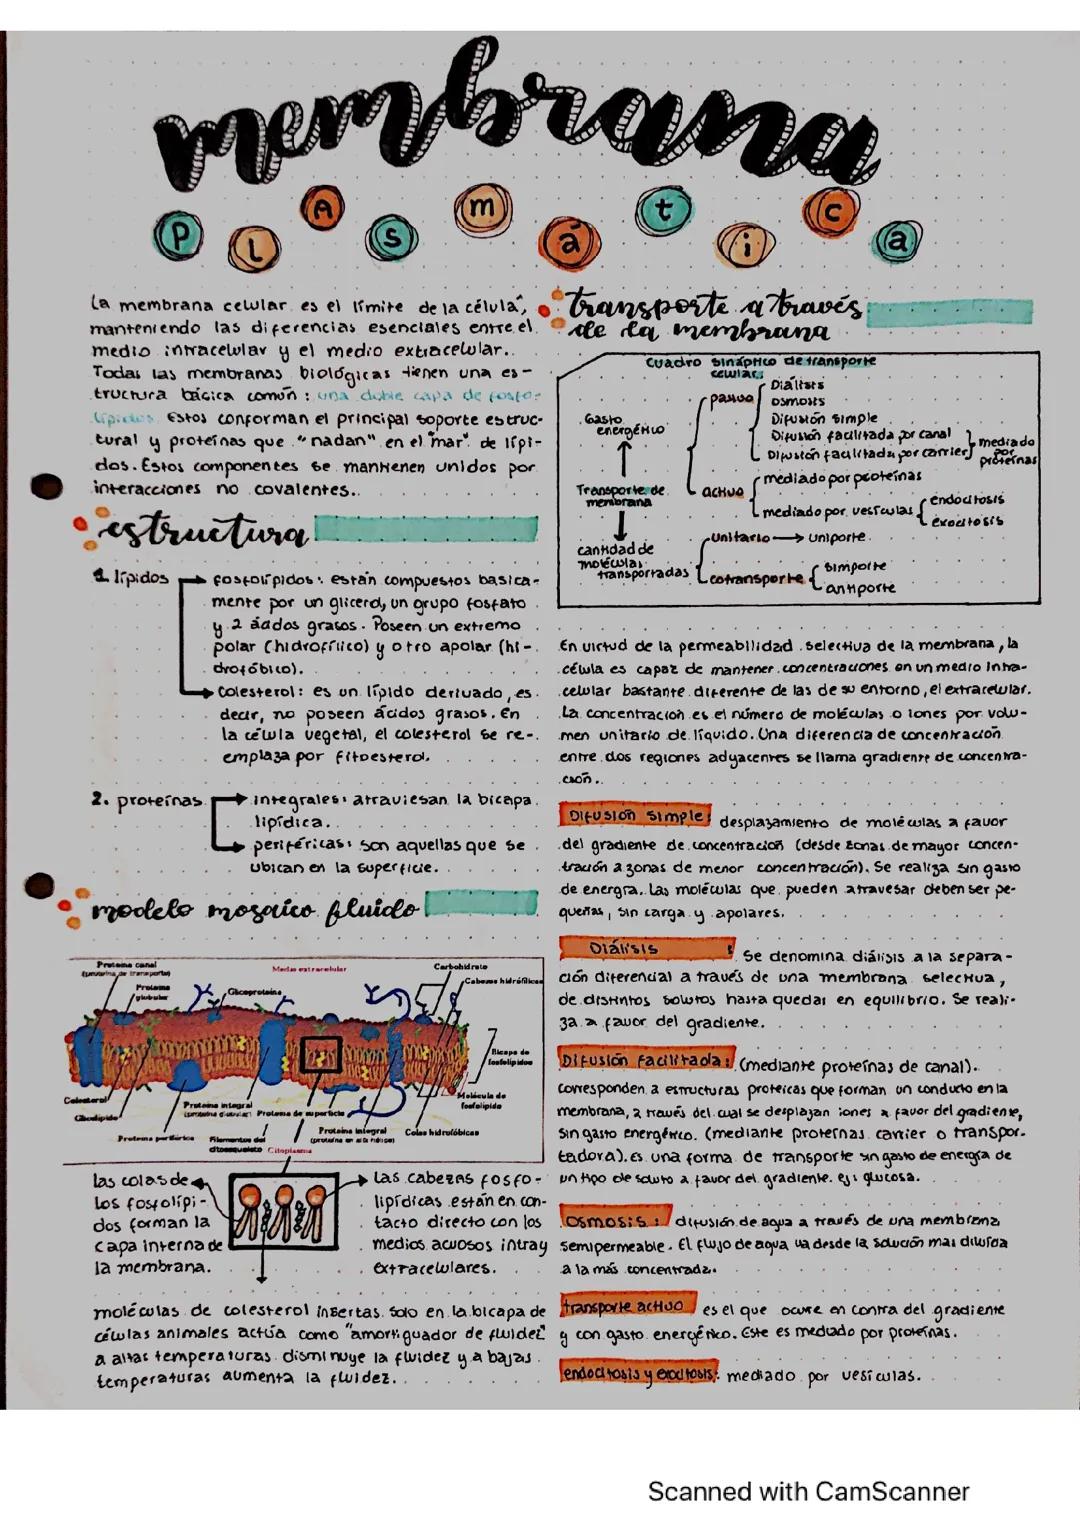 membrana
PLASmática
La membrana celular es el límite de la célula,
manteniendo las diferencias esenciales entre el
medio intracelular y el medio extracelular..
Todas las membranas biológicas tienen una es-
tructura básica común: una doble capa de fosfo-
lípidos. Estos conforman el principal soporte estruc-
tural y proteínas que "nadan" en el "mar" de lípi-
dos. Estos componentes se mantienen unidos por
interacciones no covalentes..
estructura
1. lípidos
fosfolípidos: están compuestos basica-
mente por un glicerol, un grupo fosfato
y 2 ácidos grasos. Poseen un extremo
polar (hidrofílico) y otro apolar (hi-
drofóbico).
Colesterol: es un lípido derivado, es
decir, no poseen ácidos grasos. En
la célula vegetal, el colesterol se re-
emplaza por fitoesterol.
2. proteínas
integrales: atraviesan la bicapa
lipídica.
periféricas: son aquellas que se
ubican en la superficie.
modelo mosaico fluido
Proteína canal
(proteína de transporte)
Proteína
globular
Glicoproteína
Medio extracelular
Carbohidrato
Cabezas hidrófilicas
Bicapa de
fosfolípidos
Molécula de
fosfolípido
Colesterol
Glicolípido
Proteína periférica
Proteína integral
(proteína globular)
Proteína de superficie
Filamentos del
citoesqueleto
Citoplasma
Proteína integral
(proteína en alfa hélice)
Colas hidrofóbicas
las colas de
los fosfolípi-
dos forman la
capa interna de
la membrana.
Las cabezas fosfo-
lipídicas están en con-
tacto directo con los
medios acuosos intra y
extracelulares.
moléculas de colesterol insertas solo en la bicapa de
células animales actúa como "amortiguador de fluidez"
a altas temperaturas disminuye la fluidez y a bajas
temperaturas aumenta la fluidez..
transporte a través
de la membrana
Cuadro sináptico de transporte
celular:
Gasto
energético
Transporte de
membrana
cantidad de
moléculas
transportadas
pasivo
Diálisis
osmosis
Difusión simple
Difusión facilitada por canal
Difusión facilitada por carrier
mediado
por
proteínas
activo
mediado por proteínas
mediado por vesículas
endocitosis
exocitosis
unitario → uniporte
cotransporte
simporte
antiporte
En virtud de la permeabilidad selectiva de la membrana, la
célula es capaz de mantener concentraciones en un medio intra-
celular bastante diferente de las de su entorno, el extracelular.
La concentración es el número de moléculas o iones por volu-
men unitario de líquido. Una diferencia de concentración
entre dos regiones adyacentes se llama gradiente de concentra-
ción.
Difusión simple: desplazamiento de moléculas a favor
del gradiente de concentración (desde zonas de mayor concen-
tración a zonas de menor concentración). Se realiza sin gasto
de energía. Las moléculas que pueden atravesar deben ser pe-
queñas, sin carga y apolares.
Diálisis : Se denomina diálisis a la separa-
ción diferencial a través de una membrana selectiva,
de distintos solutos hasta quedar en equilibrio. Se reali-
za a favor del gradiente.
Difusión facilitada: (mediante proteínas de canal).
corresponden a estructuras proteicas que forman un conducto en la
membrana, a través del cual se desplazan iones a favor del gradiente,
sin gasto energético. (mediante proteínas carrier o transpor-
tadora). es una forma de transporte sin gasto de energía de
un tipo de soluto a favor del gradiente. ej: glucosa.
Osmosis: difusión de agua a través de una membrana
semipermeable. El flujo de agua va desde la solución mas diluida
a la más concentrada.
transporte activo es el que ocurre en contra del gradiente
y con gasto energético. Este es mediado por proteínas.
endocitosis y exocitosis: mediado por vesículas.
Scanned with CamScanner